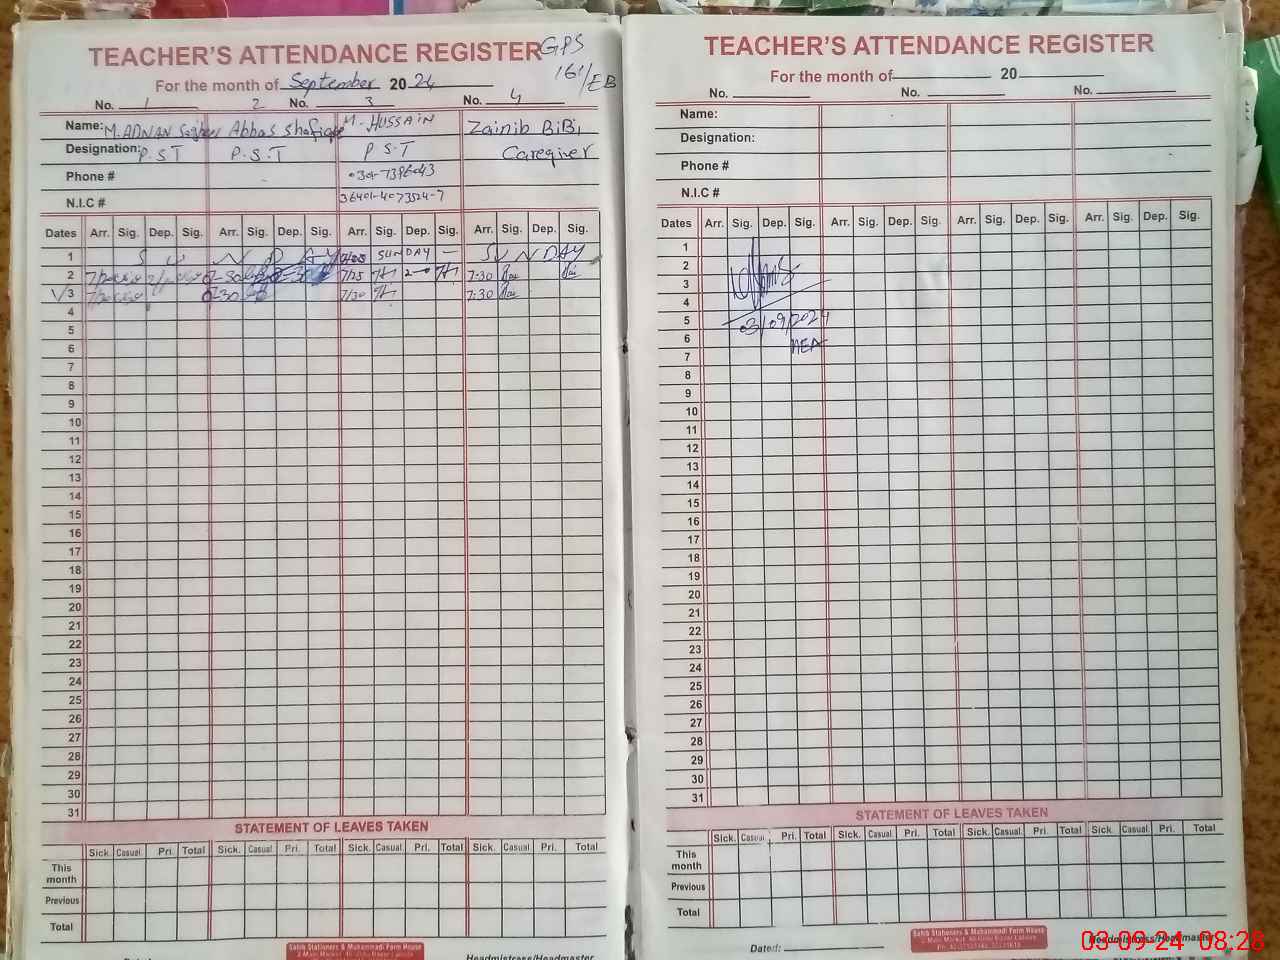 TEACHER'S ATTENDANCE REGISTER GPS
161/EB
For the month of September 2024
No. 1 2 No. 3 No. 4
Name: M. ADNAN Abbas Shafique M. HUSSAIN Zainib BiBi
Designation: P.S.T P.S.T P S.T Caregiver
Phone #
N.I.C # 36401-4073524-7
Dates Arr. Sig. Dep. Sig. Arr. Sig. Dep. Sig. Arr. Sig. Dep. Sig. Arr. Sig. Dep. Sig.
1 S U N D A Y SUNDAY — SUNDAY
2 7/25 7:30
3 7/30 7:30
4
5
6
7
8
9
10
11
12
13
14
15
16
17
18
19
20
21
22
23
24
25
26
27
28
29
30
31
STATEMENT OF LEAVES TAKEN
Sick. Casual. Pri. Total Sick. Casual Pri. Total Sick. Casual. Pri. Total Sick. Casual Pri. Total
This month
Previous
Total
Sahib Stationers & Muhammadi Form House
Headmistress/Headmaster
TEACHER'S ATTENDANCE REGISTER
For the month of 20
No. No. No.
Name:
Designation:
Phone #
N.I.C #
Dates Arr. Sig. Dep. Sig. Arr. Sig. Dep. Sig. Arr. Sig. Dep. Sig. Arr. Sig. Dep. Sig.
1
2
3
4
5 03/09/2024
6 AEA
7
8
9
10
11
12
13
14
15
16
17
18
19
20
21
22
23
24
25
26
27
28
29
30
31
STATEMENT OF LEAVES TAKEN
Sick. Casual. Pri. Total Sick. Casual. Pri. Total Sick. Casual. Pri. Total Sick. Casual. Pri. Total
This month
Previous
Total
Sahib Stationers & Muhammadi Form House
Dated: Headmistress/Headmaster
03-09-24 08:28